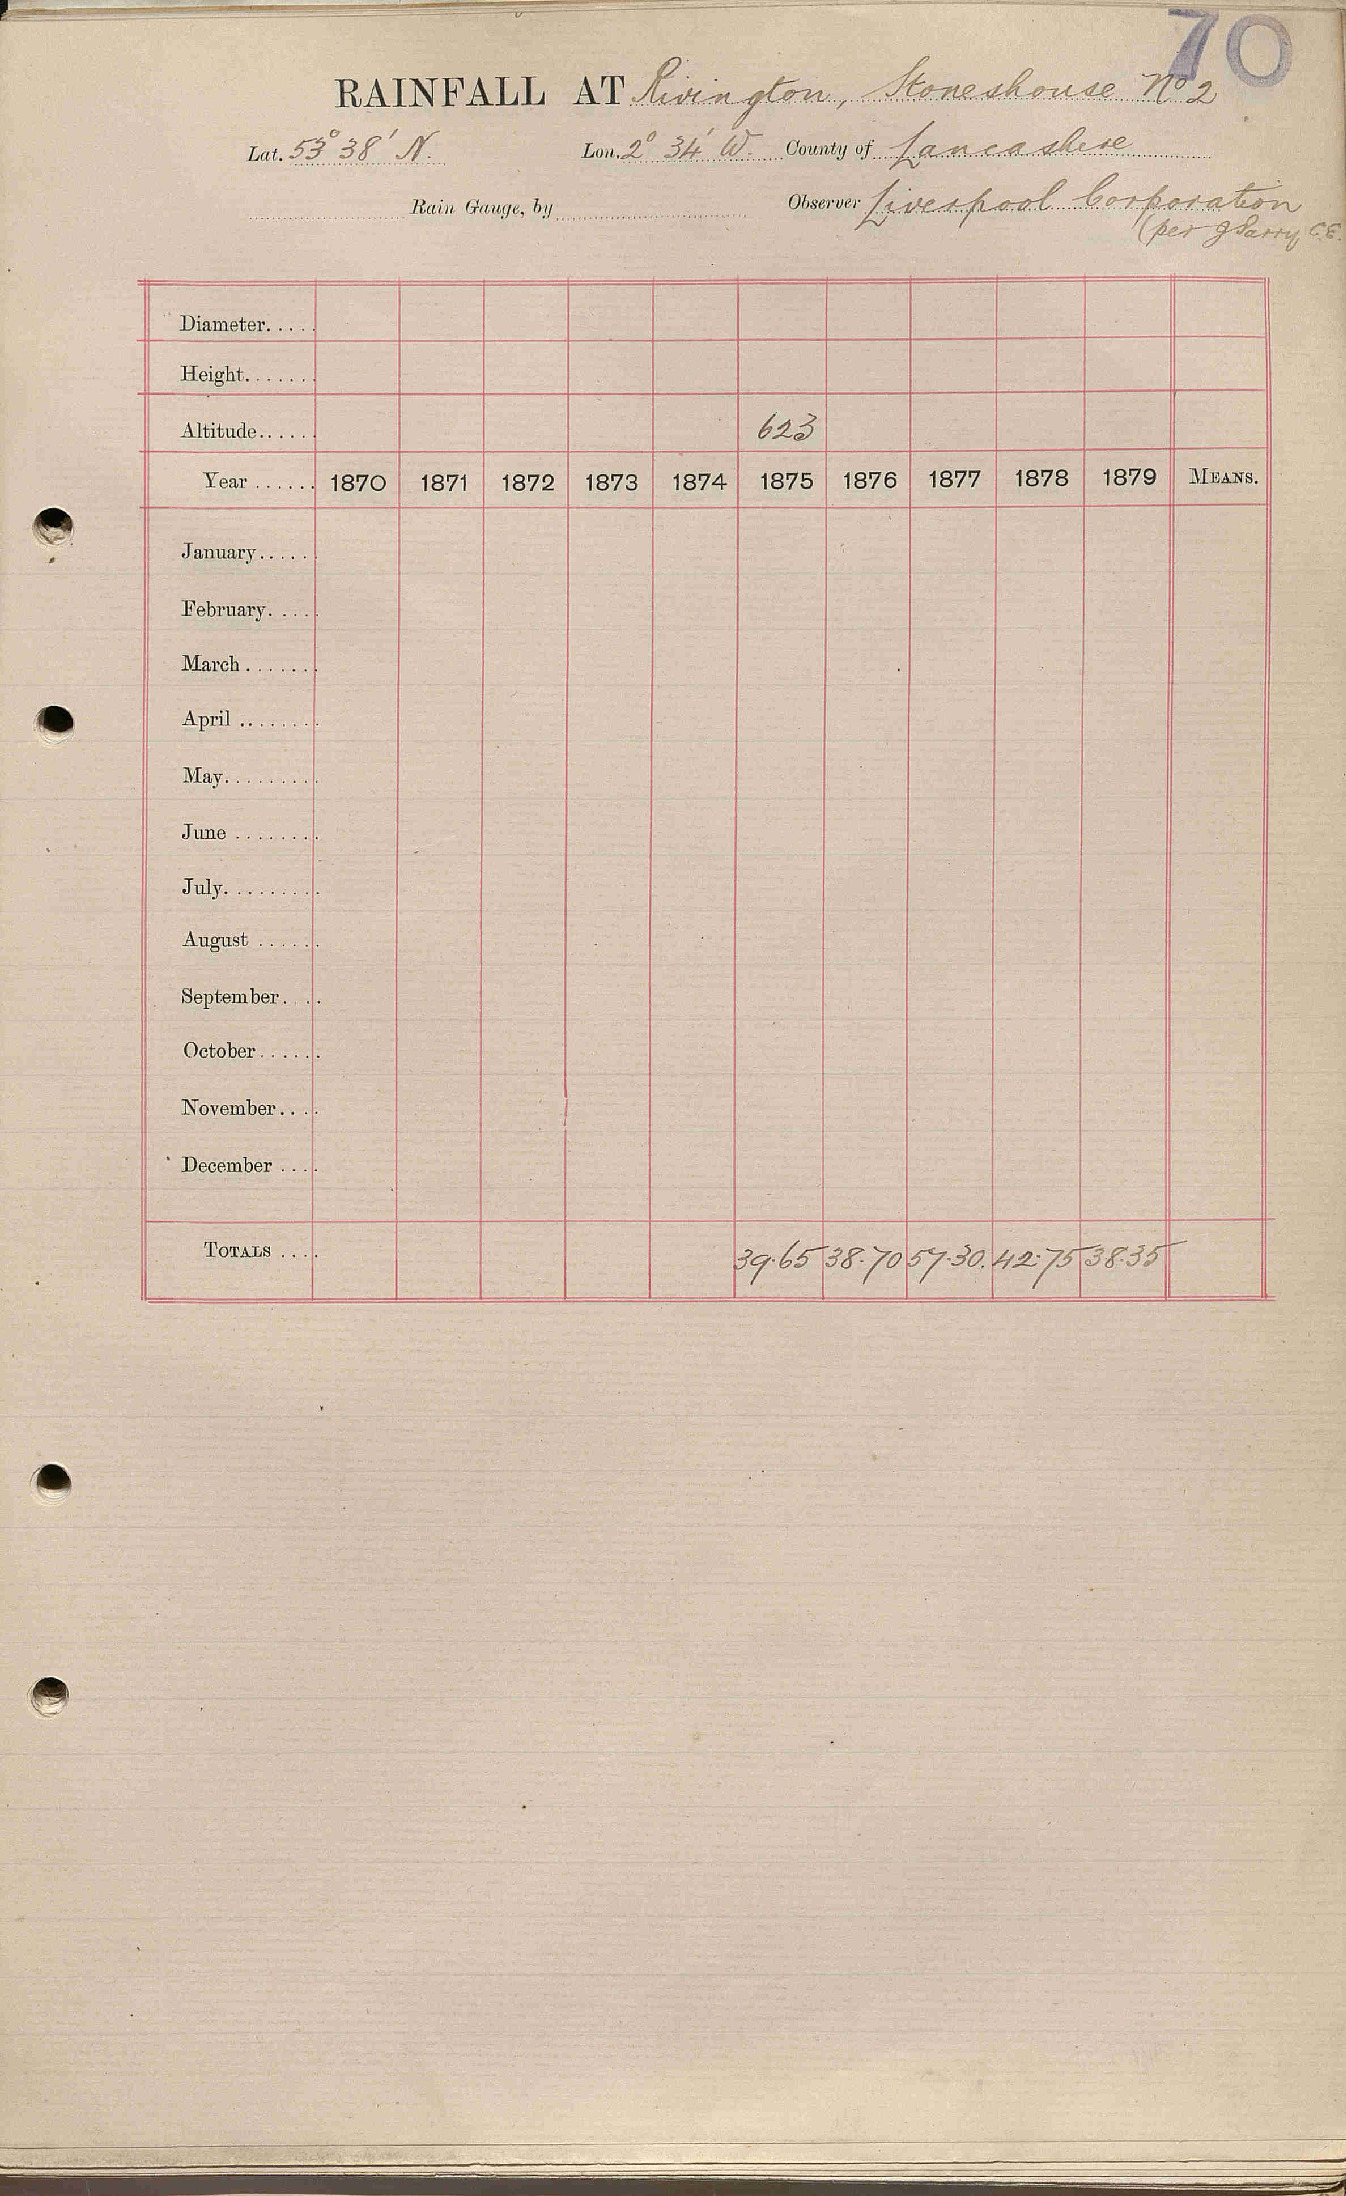 70
RAINFALL AT Rivington, Stoneshouse No 2
Lat. 53° 38' N. Lon. 2° 34' W. County of Lancashire
Rain Gauge, by Observer Liverpool Corporation
(per J Parry C.E.
Diameter.....
Height.......
Altitude...... 623
Year ...... 1870 1871 1872 1873 1874 1875 1876 1877 1878 1879 MEANS.
January.....
February.....
March.......
April ........
May.........
June ........
July.........
August ......
September....
October......
November....
December ....
TOTALS .... 39.65 38.70 57.30. 42.75 38.35